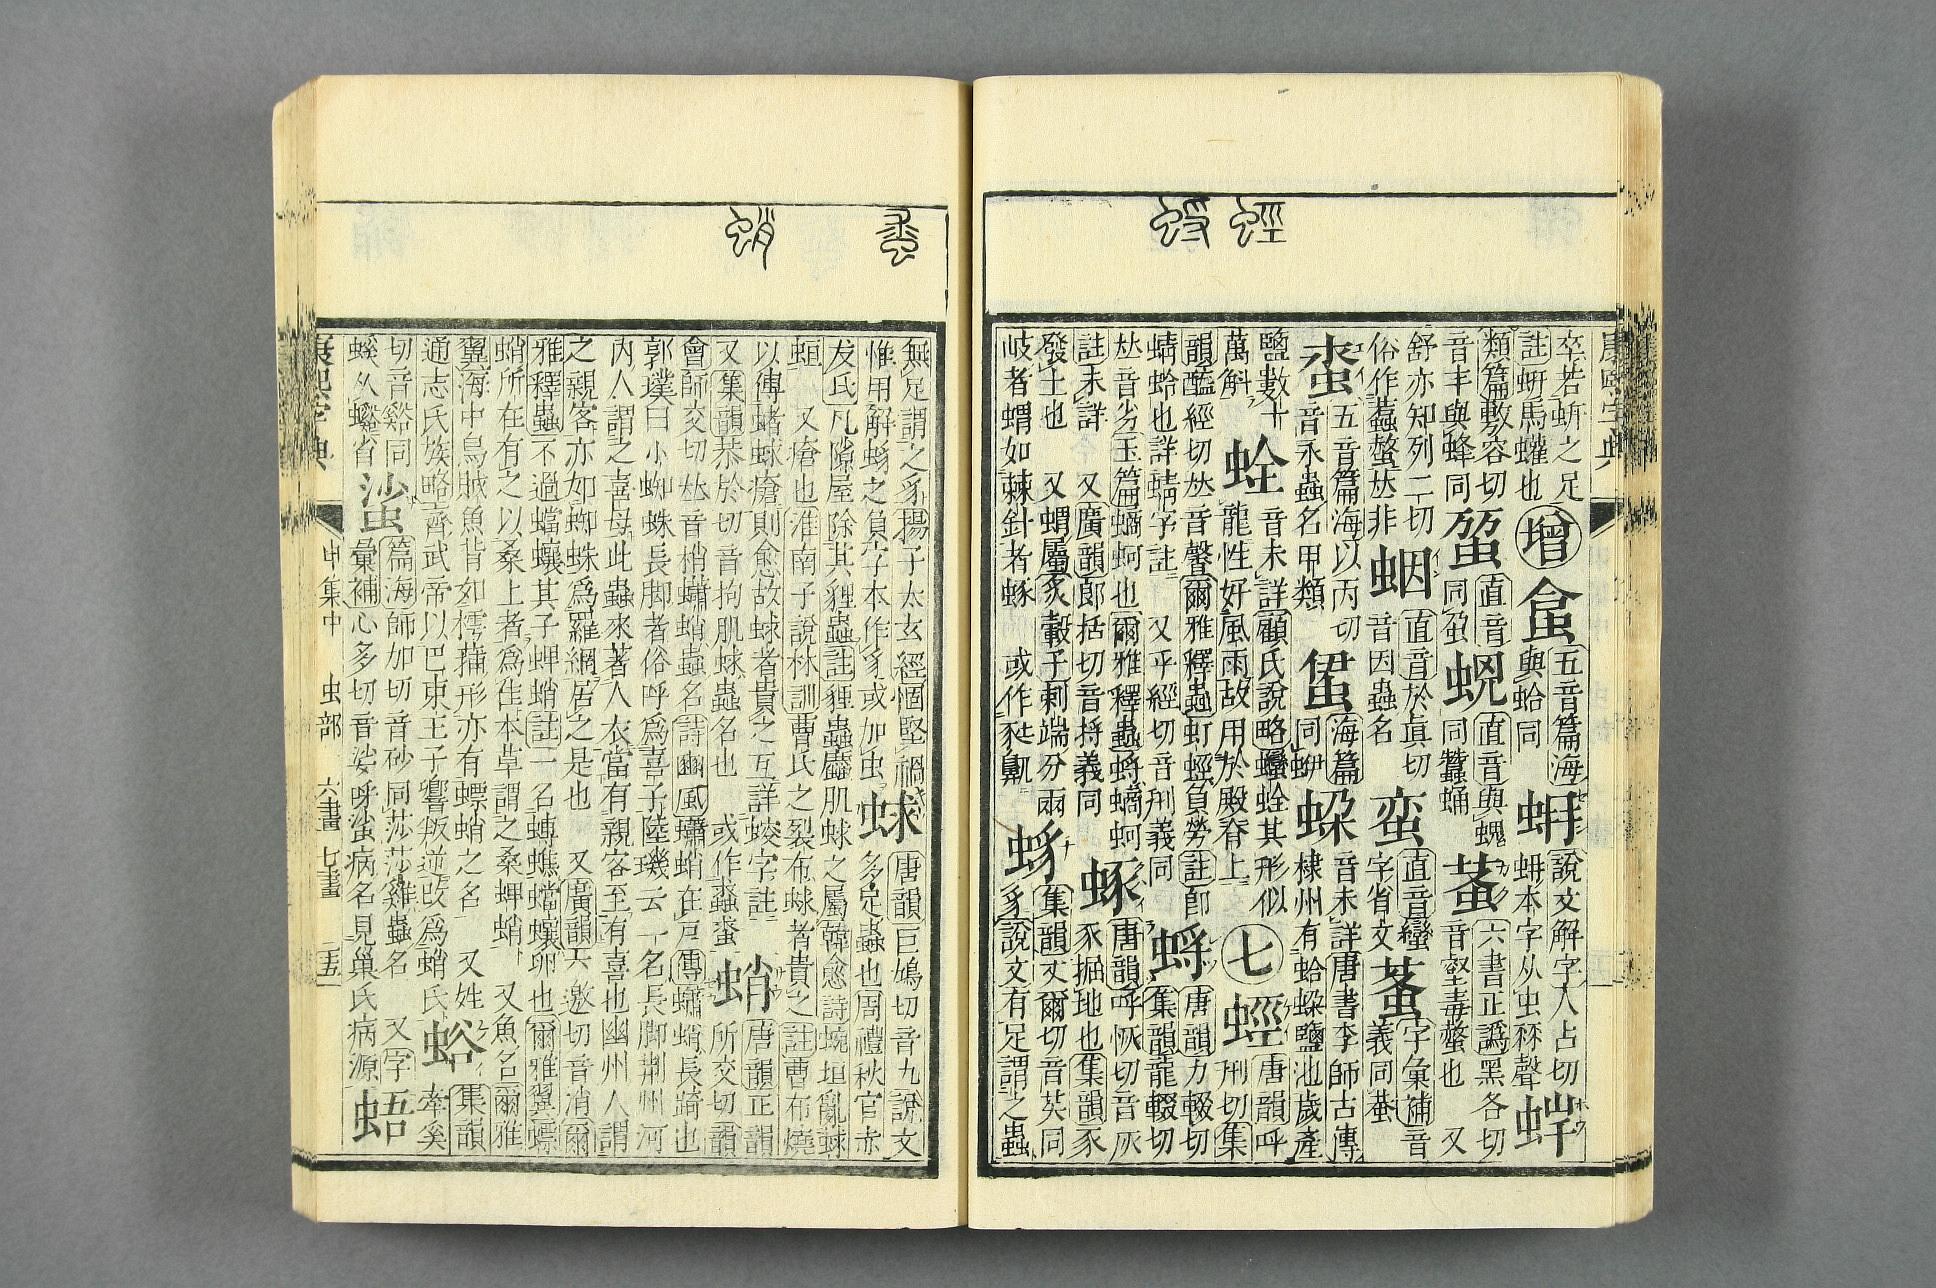 經 蛶
卒若蚚之足註蚈馬蠸也增 五音篇海與蛤同 說文解字人占切 本字从虫 聲
類篇敷容切音丰與蜂同 直音同 直音與 同蠶蛹 六書正譌黑各切音壑毒螫也 又
舒亦切 列二切俗作蠚螫𠀤非蛔直音於眞切音因蟲名蛮直音蠻字省文 字彙補音義同
五音篇海以丙切音永蟲名甲類 海篇同 音未詳唐書李師古傳棣州有蛤 鹽池歲產
鹽數十萬斛蛤音未詳顧氏說略 其形似龍性好風雨故用於殿脊上七蛵唐韻呼刑切集
韻醯經切𠀤音馨爾雅釋蟲虰蛵負勞註卽蜻蛉也詳蜻字註 又平經切音刑義同蛶唐韻力輟切集韻龍輟切
𠀤音劣玉篇螪蚵也爾雅釋蟲蛶螪蚵註未詳 又廣韻郎括切音捋義同 唐韻呼恢切音灰豕掘地也集韻豕
發土也 又蝟屬炙轂子刺端分兩岐者蝟如棘針者 或作 豕 集韻丈爾切音 同豸說文有足謂之蟲
蛷 蛸
無足謂之豸揚子太玄經 解蜉之負字本作豸或加虫蛷唐韻巨鳩切音九說文多足蟲也周禮秋官赤
犮氏凡隙屋除其貍蟲註貍蟲䗪肌蛷之屬韓愈詩 垣亂蛷蚷 又瘡也淮南子說林訓曹氏之裂布蛷者貴之註曹布燒
以傅蛷瘡則愈故蛷者貴之互詳 字註 又集韻恭於切音拘肌蛷蟲名也 或作 蛸唐韻正韻所交切韻
會師交切𠀤音梢蠨蛸蟲名詩豳風蠨蛸在戸傳蠨蛸長踦也郭璞曰小蜘蛛長脚者俗呼爲喜子陸璣云一名長脚荆州河
內人謂之喜母此蟲來著人衣當有親客至有喜也幽州人謂之親客亦如蜘蛛爲羅網居之是也 又廣韻 邀切音消爾
雅釋蟲不過蟷蠰其子蜱蛸註一名 蟷蠰卵也爾雅翼螵蛸所在有之以桑上者爲佳本草謂之桑蜱蛸 又魚名爾雅
翼海中烏賊魚背如樗蒲形亦有螵蛸之名 又姓通志氏族略齊武帝以巴東王子響叛逆改爲蛸氏 集韻牽奚
切音谿同螇从蠵省 篇海師加切音砂同莎莎雞蟲名 又字彙補心多切音娑呼 病名見巢氏病源蛣
康熙字典 申集中 虫部 六畫 七畫 五